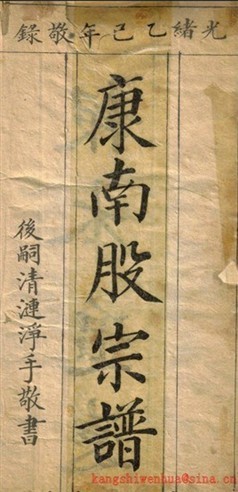 光緒乙巳年敬錄
康南股宗譜
後嗣清漣淨手敬書
kangshiwenhua@sina.cn